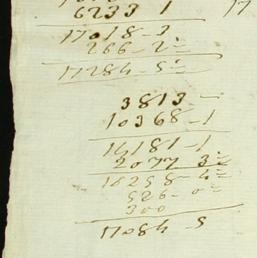 6233 1 17
17018-3
266-2=
17284-5=
3813 -
10368-1
14181-1
2077 3=
16258-4=
526-0=
300
17084 5